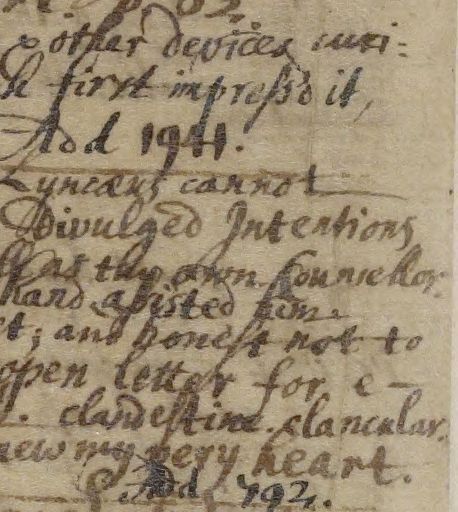 & other devices curi:
first impress'd it,
Add 1941.
Lyncæus cannot
Divulged Intentions
as thy own Counsellor.
hand assisted him.
; and honest not to
open letter for e-
clandestine. clancular.
new my very heart.
Add, 792.